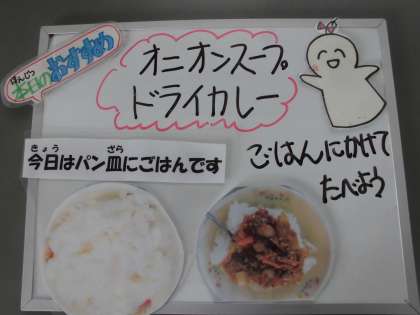 ほんじつ
本日のおすすめ
オニオンスープ
ドライカレー
きょう ざら
今日はパン皿にごはんです
ごはんにかけて
たべよう